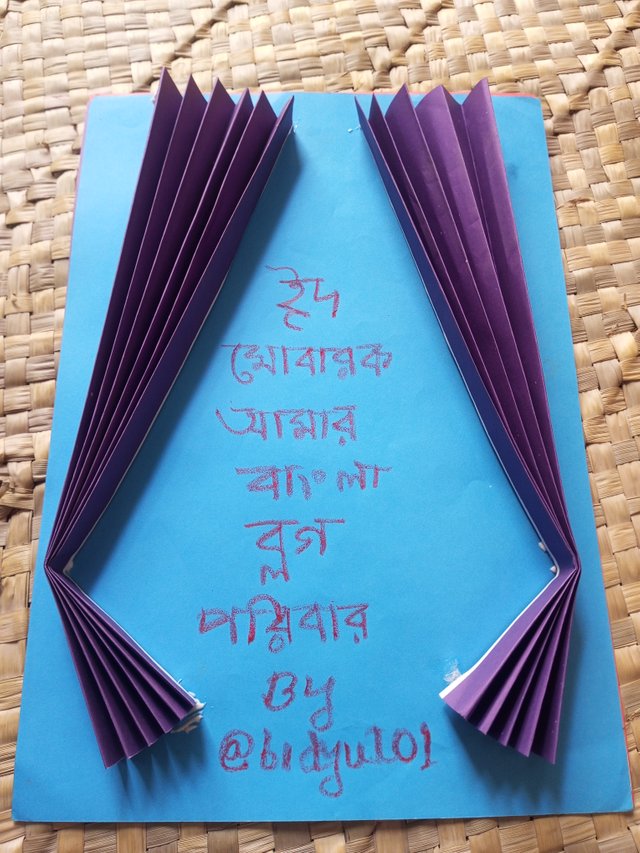 ইদ
মোবারক
আমার
বাংলা
ব্লগ
পরিবার
By
@bidyut01